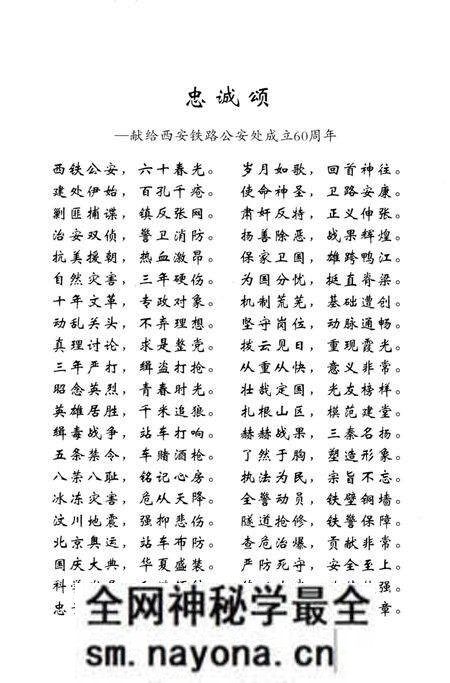 忠诚颂
—献给西安铁路公安处成立60周年
西铁公安，六十春光。 岁月如歌，回首神往。
建处伊始，百孔千疮。 使命神圣，卫路安康。
剿匪捕谍，镇反张网。 肃奸反特，正义伸张。
治安双侦，警卫消防。 扬善除恶，战果辉煌。
抗美援朝，热血激昂。 保家卫国，雄跨鸭江。
自然灾害，三年硬伤。 为国分忧，挺直脊梁。
十年文革，专政对象。 机制荒芜，基础遭创。
动乱关头，不弃理想。 坚守岗位，动脉通畅。
真理讨论，求是整党。 拨云见日，重现霞光。
三年严打，缉盗打抢。 从重从快，意义非常。
昭念英烈，青春时光。 壮哉定国，光友榜样。
英雄居胜，千米追狼。 扎根山区，模范建堂。
缉毒战争，站车打响。 赫赫战果，三秦名扬。
五条禁令，车赌酒枪。 了然于胸，塑造形象。
八荣八耻，铭记心房。 执法为民，宗旨不忘。
冰冻灾害，危从天降。 全警动员，铁壁铜墙。
汶川地震，强抑悲伤。 隧道抢修，铁警保障。
北京奥运，站车布防。 查危治爆，贡献非常。
国庆大典，华夏盛装。 严防死守，安全至上。
科学 强。
忠 章。
全网神秘学最全
sm.nayona.cn